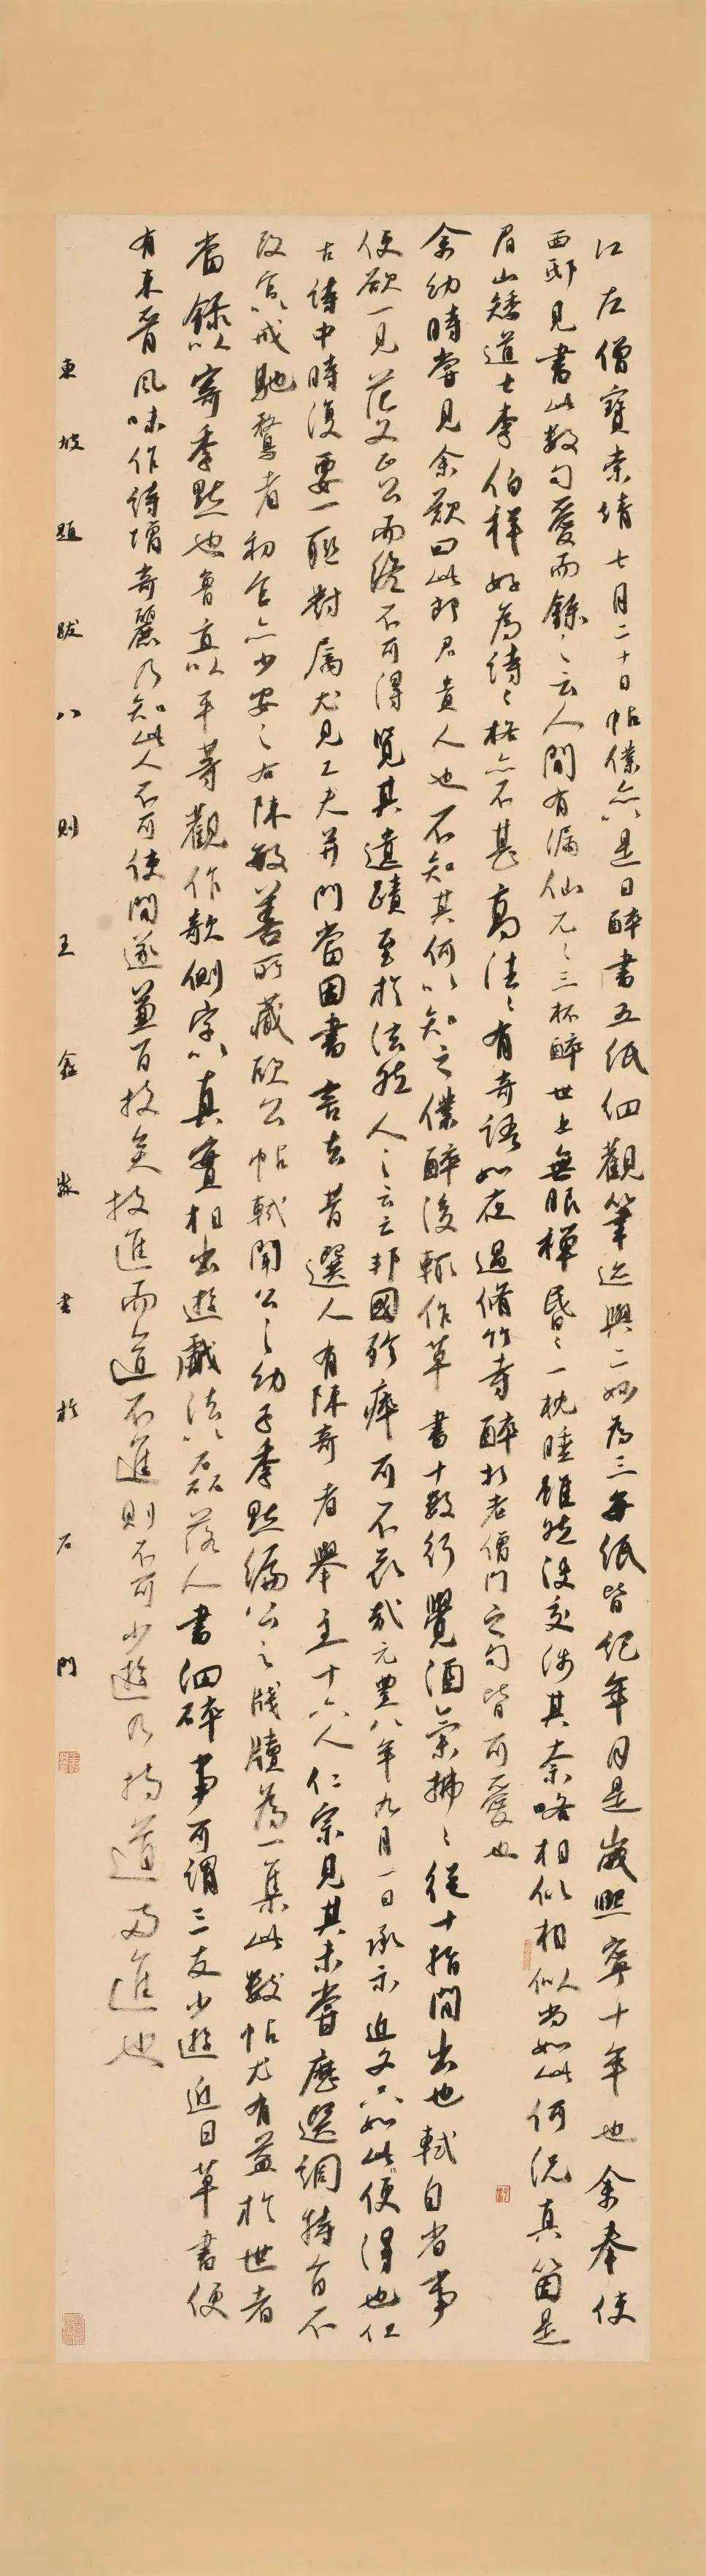 江左僧寶索靖七月二十日帖僕亦以是日醉書五紙細觀筆迹與二妙為三每紙皆紀年月是歲熙寧十年也余奉使
西邸見書此數句愛而錄之云人間有漏仙兀兀三杯醉世上無眼禪昏昏一枕睡雖然沒交涉其奈略相似相似尚如此何況真箇是
眉山矮道士李伯祥好為詩詩格亦不甚高往往有奇語如夜過脩竹寺醉打老僧門之句皆可愛也
余幼時嘗見余歎曰此郎君貴人也不知其何以知之僕醉後輒作草書十數行覺酒氣拂拂從十指間出也軾自省事
便欲一見范文正公而終不可得覽其遺蹟至於泫然人之云亡邦國殄瘁可不哀哉元豐八年九月一日承示近文只如此便得也但
古詩中時復要一聯對屬尤見工夫并門當困書言去昔選人有陳奇者舉主十六人仁宗見其未嘗歷選調特旨不
改官以戒馳騖者初官亦少安之右陳敏善所藏歐公帖軾聞公之幼子季默編公之牋牘為一集此數帖尤有益於世者
當錄以寄季默也魯直以平等觀作欹側字以真實相出遊戲法以磊落人書細碎事可謂三反少遊近日草書便
有東晉風味作詩增奇麗乃知此人不可使閒遂兼百技矣技進而道不進則不可少遊乃技道兩進也
東坡題跋八則王鑫牧書於石門